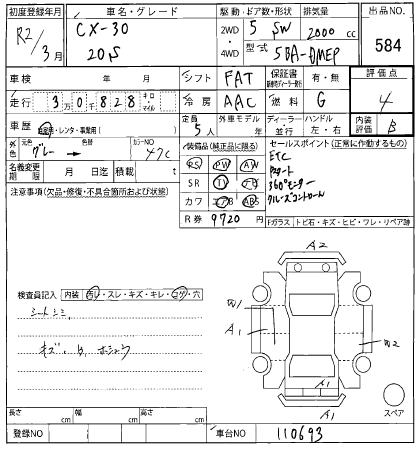 初度登録年月 車名・グレード 駆動・ドア数・形状 排気量 出品NO
R2/3月 CX-30 20S 2WD 4WD 5 SW 2000 cc 584
型式 5BA-DMEP
車検 年 月 シフト FAT 保証書 有・無 評価点
走行 3万0千828 キロ マイル 冷房 AAC 燃料 G 4
車歴 自家用・レンタ・事業用 定員 5人 外車モデル 年 ディーラー 並行 ハンドル 左・右 内装評価 B
外色 元色 グレー → 色替 カラーNO 47C 装備品(純正品に限る) セールスポイント(正常に作動するもの)
名義変更期限 月 日迄 積載 t PS PW AW ETC
注意事項(欠品・修復・不具合箇所および状態) SR TV ナビ Pスタート
カワ エアB ABS 360°モニター
R券 9720 円 クルーズコントロール
Fガラス トビ石・キズ・ヒビ・ワレ・リペア跡
A2
検査員記入 内装 汚レ・スレ・キズ・キレ・コゲ・穴
W1
シートシミ、
A1
W2
キズ、
A1
A1
スペア
長さ cm 幅 cm 高さ cm
登録NO 車台NO 110693